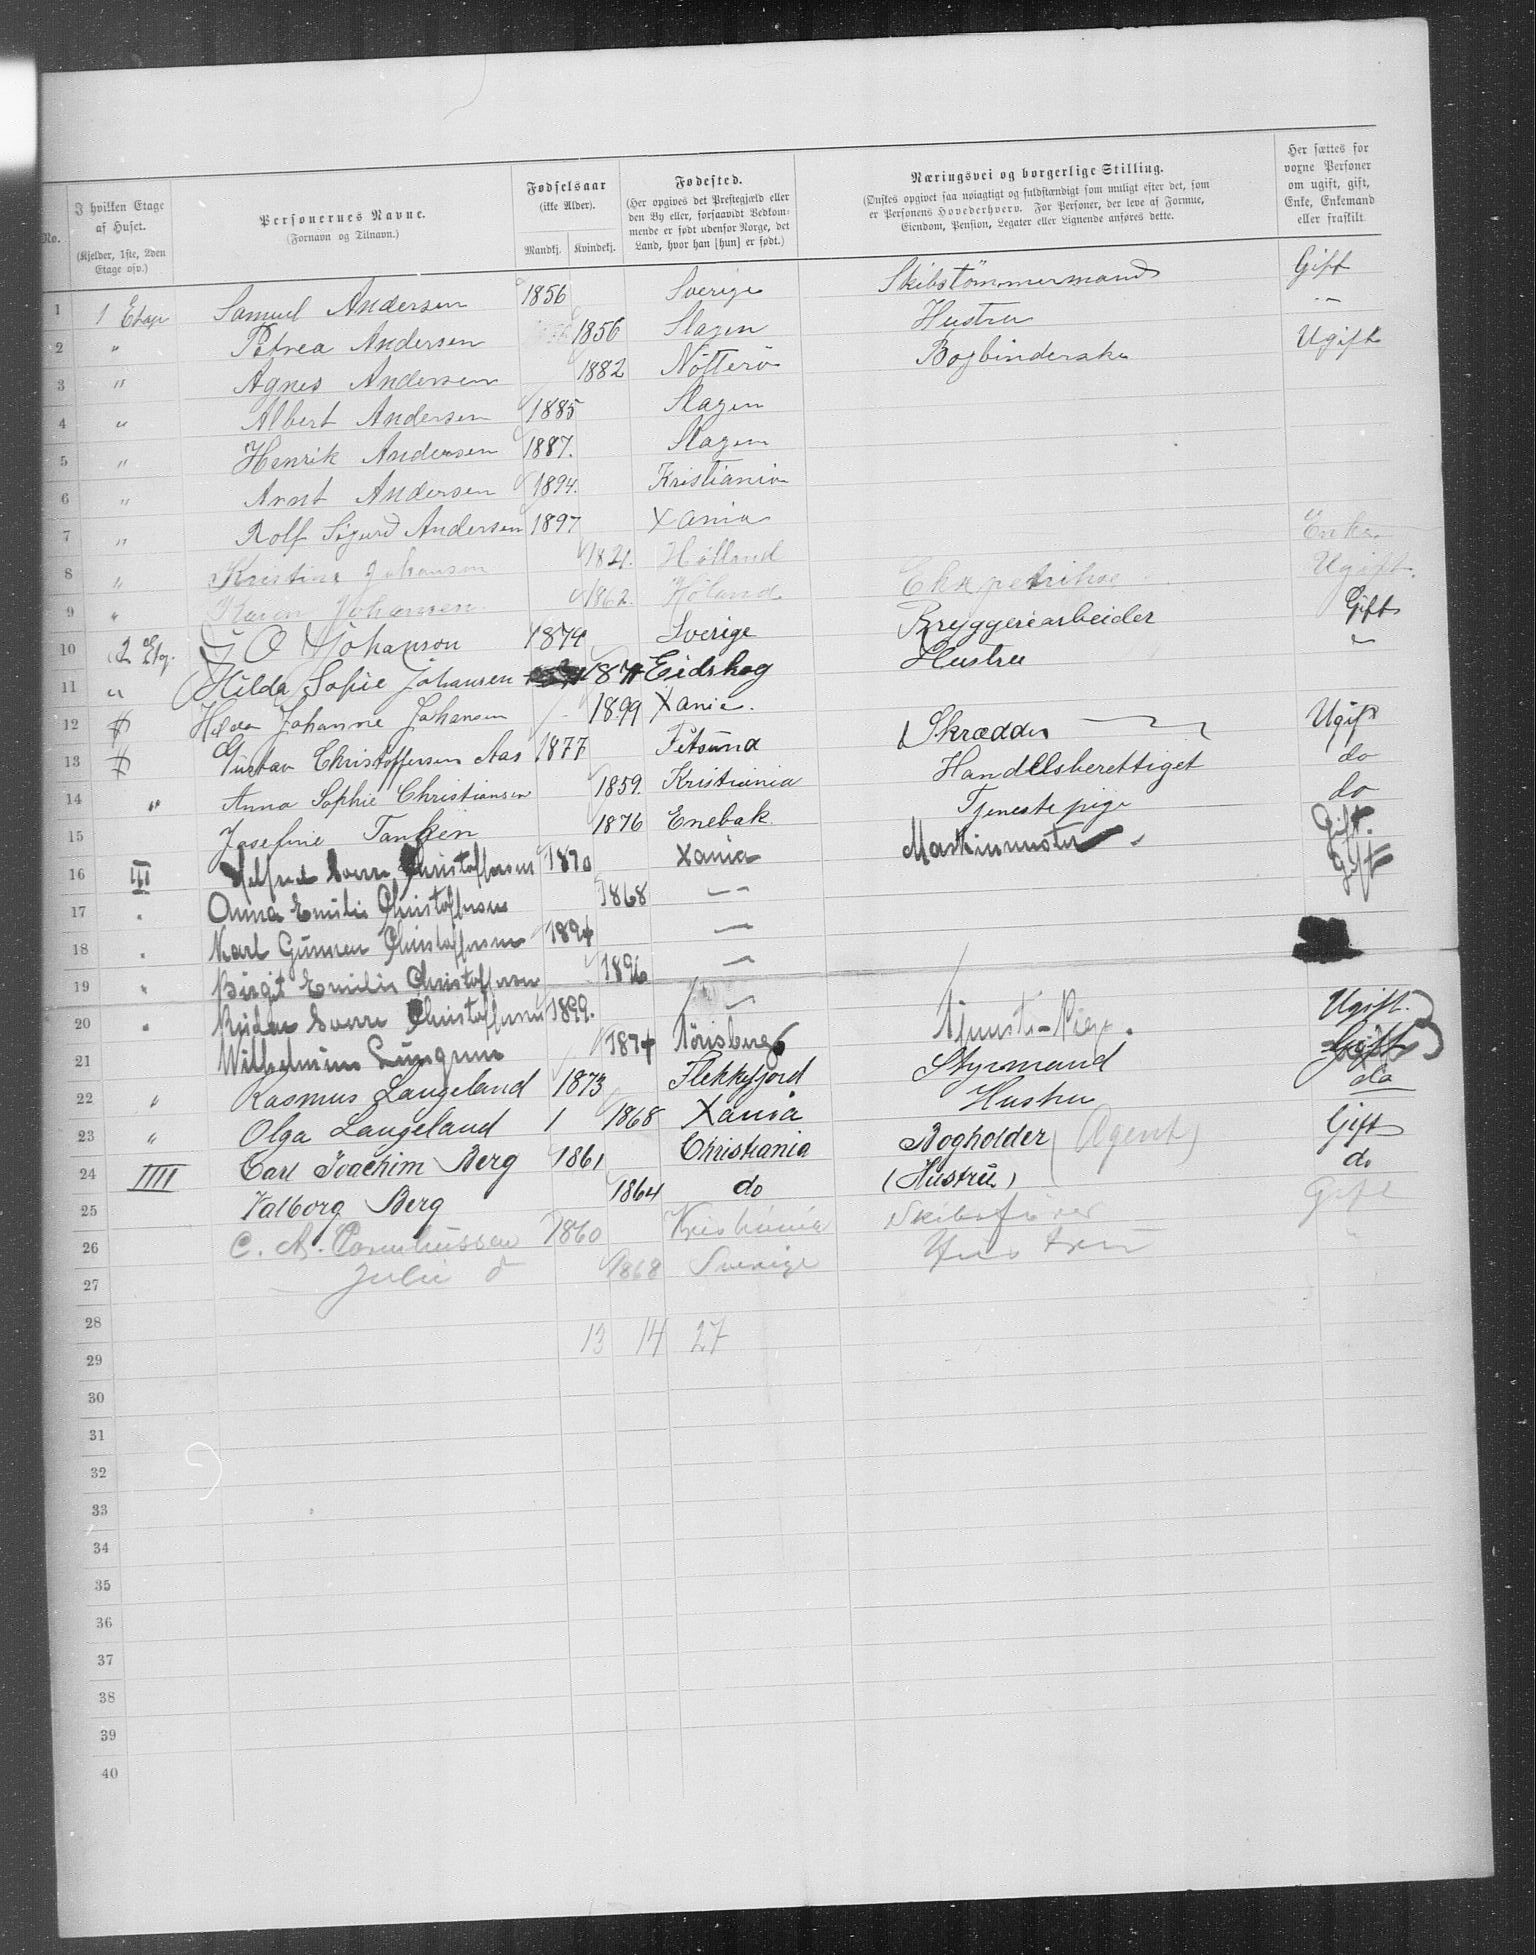 No. I hvilken Etage af Huset. (Kjelder, 1ste, 2den Etage osv.) Personernes Navne. (Fornavn og Tilnavn.) Fødselsaar (ikke Alder). Mandkj. Kvindekj. Fødested. (Her opgives det Prestegjæld eller den By eller, forsaavidt Vedkommende er født udenfor Norge, det Land, hvor han [hun] er født.) Næringsvei og borgerlige Stilling. (Ønskes opgivet saa nøiagtigt og fuldstændigt som muligt efter det, som er Personens Hovederhverv. For Personer, der leve af Formue, Eiendom, Pension, Legater eller Lignende anføres dette. Her sættes for voxne Personer om ugift, gift, Enke, Enkemand eller fraskilt
1 1 Etage Samuel Andersen 1856 Sverige Skibstømmermand Gift
2 " Petrea Andersen 1856 Slagen Hustru "
3 " Agnes Andersen 1882 Nötterö Bogbinderske Ugift
4 " Albert Andersen 1885 Slagen
5 " Henrik Andersen 1887. Slagen
6 " Arnt Andersen 1894. Kristiania
7 " Rolf Sigurd Andersen 1897 Xania
8 " Kristine Johansen 1821. Hølland Enke
9 " Karen Johansen 1862. Høland Ugift.
10 2 Etg. J O Johanson 1874 Sverige Bryggeriarbeider Gift
11 " Hilda Sofie Johansen 1874 Eidskog Hustru "
12 Helga Johanne Johansen 1899 Xania.
13 Gustav Christoffersen Aas 1877 Fetsund Skrædder Ugift
14 " Anna Sophie Christiansen 1859. Kristiania Handelsberettiget do
15 Josefine Tanken 1876 Enebak Tjenestepige do
16 III Christoffersen 1870 Xania Maskinmester Gift.
17 " Anna Emilie Christoffersen 1868 — Gift
18 " Karl Gunnar Christoffersen 1894 —
19 " Birgit Emilie Christoffersen 1896 —
20 " Christoffersen 1899. —
21 Wilhelmine 1874 Tjeneste-Pige. Ugift.
22 " Rasmus Langeland 1873 Flekkefjord Styrmand Gift
23 " Olga Langeland 1 1868 Xania Hustru do
24 IIII Carl Joachim Berg 1861 Christiania Bogholder (Agent) Gift
25 Valborg Berg 1864 do (Hustru) do
26 C. A. Corneliussen 1860 Kristiania Skibsfører Gift
27 Julie d 1868 Sverige Hustru "
28
29 13 14 27
30
31
32
33
34
35
36
37
38
39
40